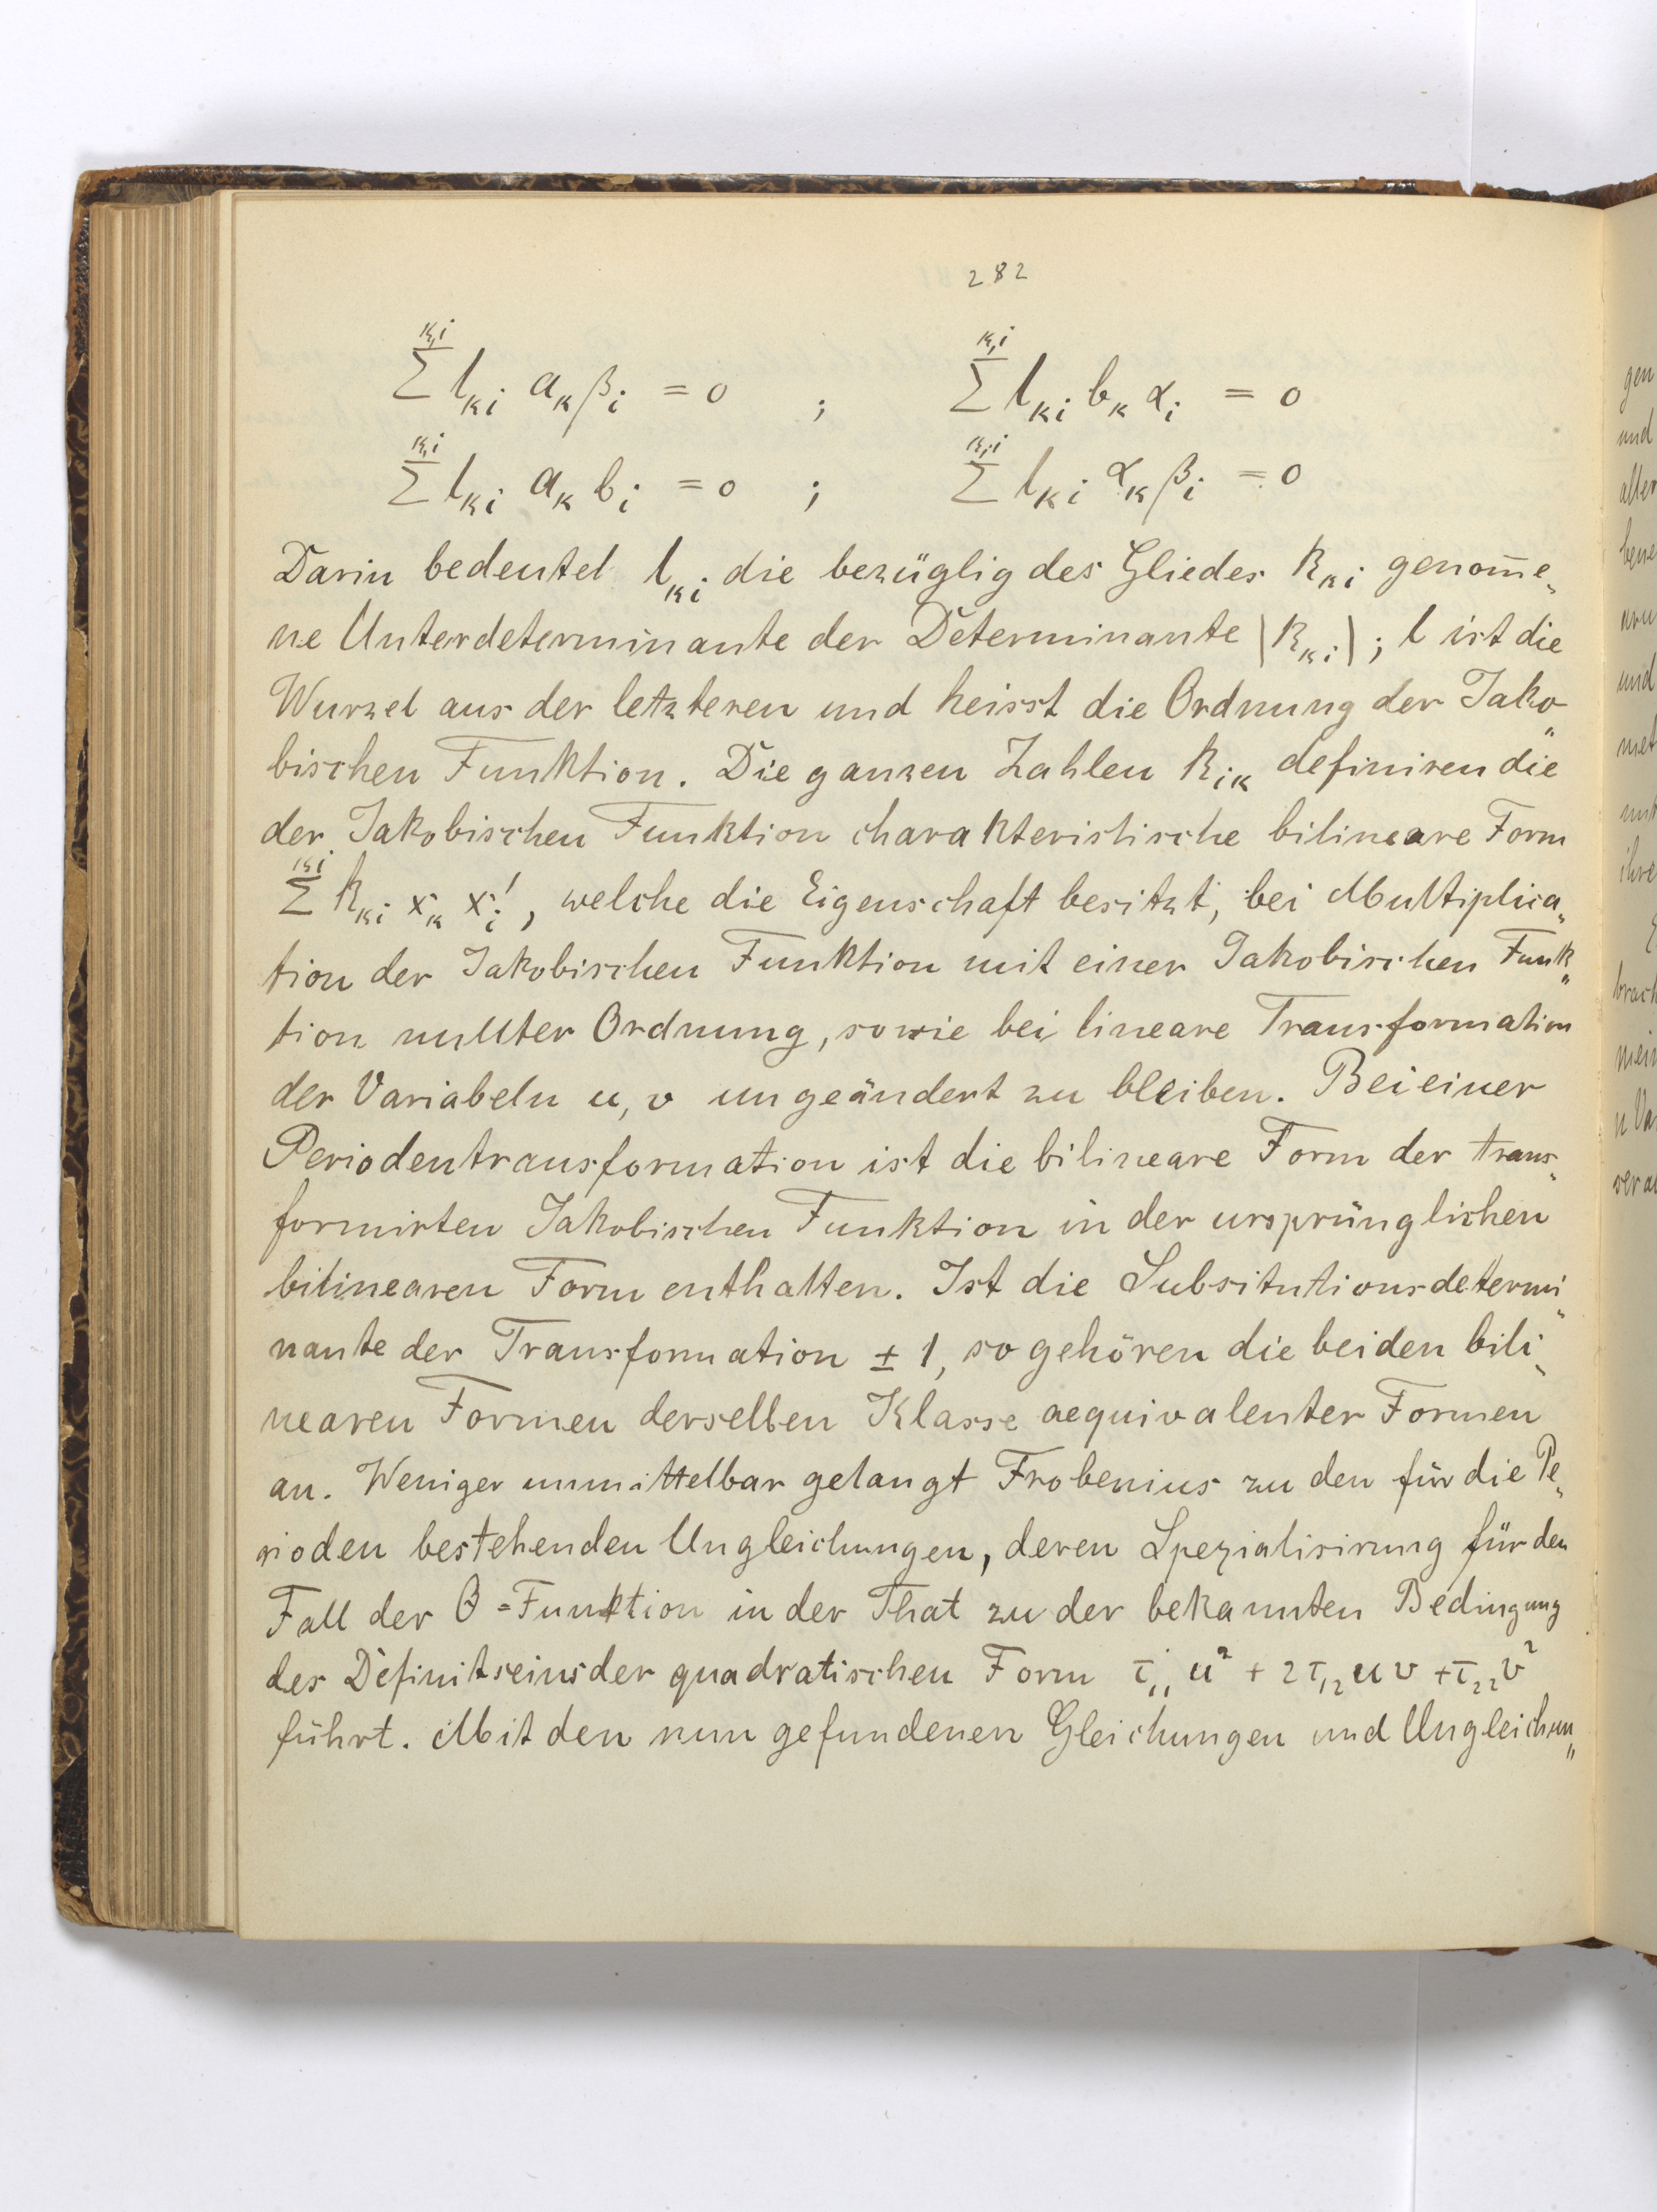 282
Σ^{k,i} l_{ki} a_k β_i = 0 ; Σ^{k,i} l_{ki} b_k α_i = 0
Σ^{k,i} l_{ki} a_k b_i = 0 ; Σ^{k,i} l_{ki} α_k β_i = 0
Darin bedeutet l_{ki} die bezüglig des Gliedes k_{ki} genom̅e„
ne Unterdeterminante der Determinante |k_{ki}|; l ist die
Wurzel aus der letzteren und heisst die Ordnung der Jako„
bischen Funktion. Die ganzen Zahlen k_{ik} definiren die
der Jakobischen Funktion charakteristische bilineare Form
Σ^{ki} k_{ki} x_k x_i', welche die Eigenschaft besitzt, bei Multiplica„
tion der Jakobischen Funktion mit einer Jakobischen Funk„
tion nullter Ordnung, sowie bei lineare Transformation
der Variabeln u, v ungeändert zu bleiben. Bei einer
Periodentransformation ist die bilineare Form der trans„
formirten Jakobischen Funktion in der ursprünglichen
bilinearen Form enthalten. Ist die Subsitutionsdetermi„
nante der Transformation ± 1, so gehören die beiden bili„
nearen Formen derselben Klasse aequivalenter Formen
an. Weniger unmittelbar gelangt Frobenius zu den für die Pe„
rioden bestehenden Ungleichungen, deren Spezialisirung für den
Fall der Θ=Funktion in der That zu der bekannten Bedingung
des Definitseins der quadratischen Form τ_{11} u² + 2τ_{12} u v + τ_{22} v²
führt. Mit den nun gefundenen Gleichungen und Ungleichun„
gen
und